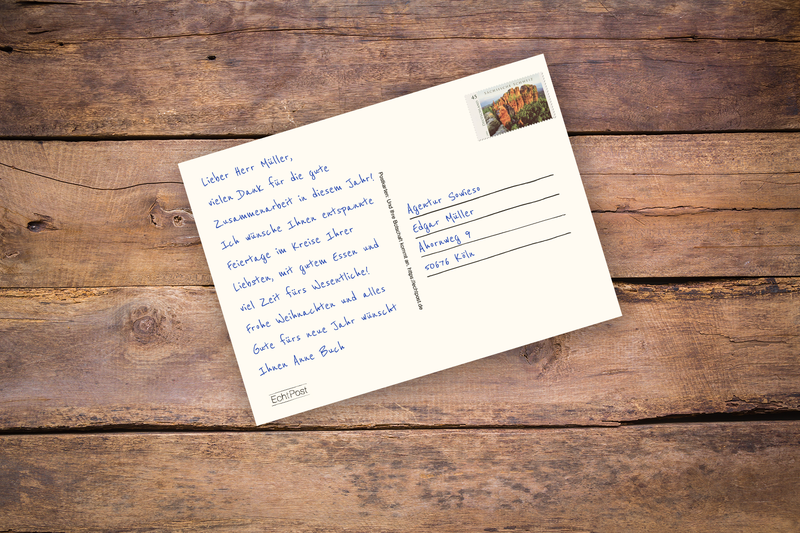 Lieber Herr Müller,
vielen Dank für die gute
Zusammenarbeit in diesem Jahr!
Ich wünsche Ihnen entspannte
Feiertage im Kreise Ihrer
Liebsten, mit gutem Essen und
viel Zeit fürs Wesentliche!
Frohe Weihnachten und alles
Gute fürs neue Jahr wünscht
Ihnen Anne Buch
EchtPost
Postkarten. Und Ihre Botschaft kommt an. https://echtpost.de
45
SÄCHSISCHE SCHWEIZ
Agentur Sowieso
Edgar Müller
Ahornweg 9
50676 Köln